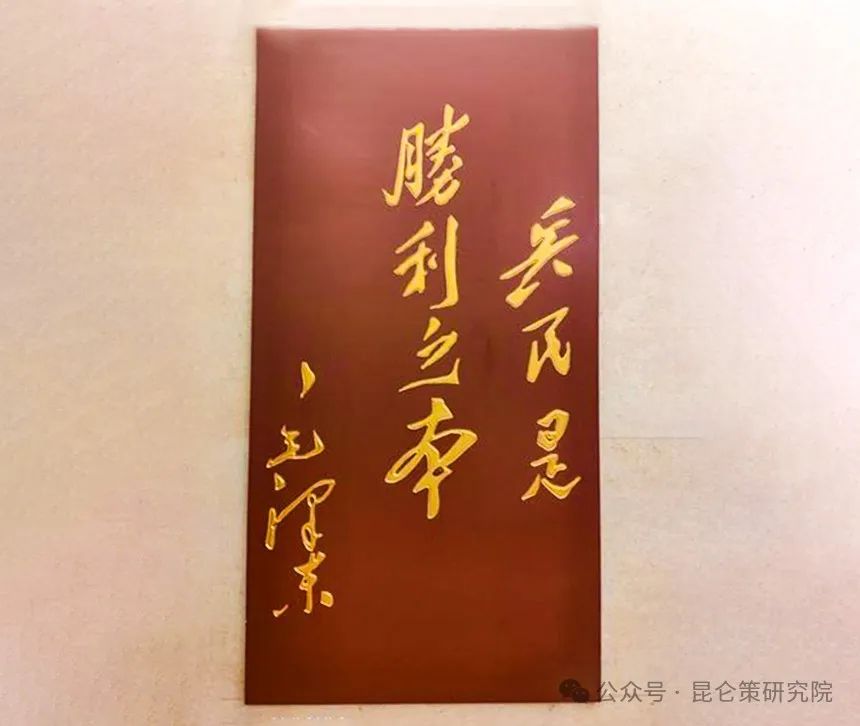 兵民是
勝利之本
毛澤东
公众号·昆仑策研究院